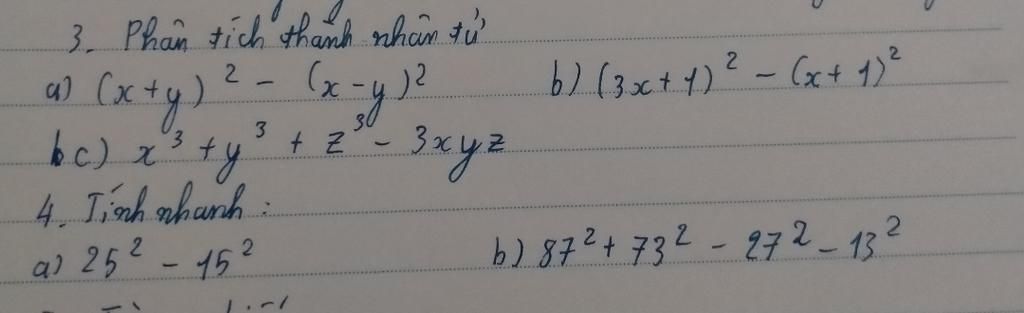 3. Phân tích thành nhân tử
a) (x+y)² - (x-y)² b) (3x+1)² - (x+1)²
c) x³ + y³ + z³ - 3xyz
4. Tính nhanh :
a) 25² - 15² b) 87² + 73² - 27² - 13²